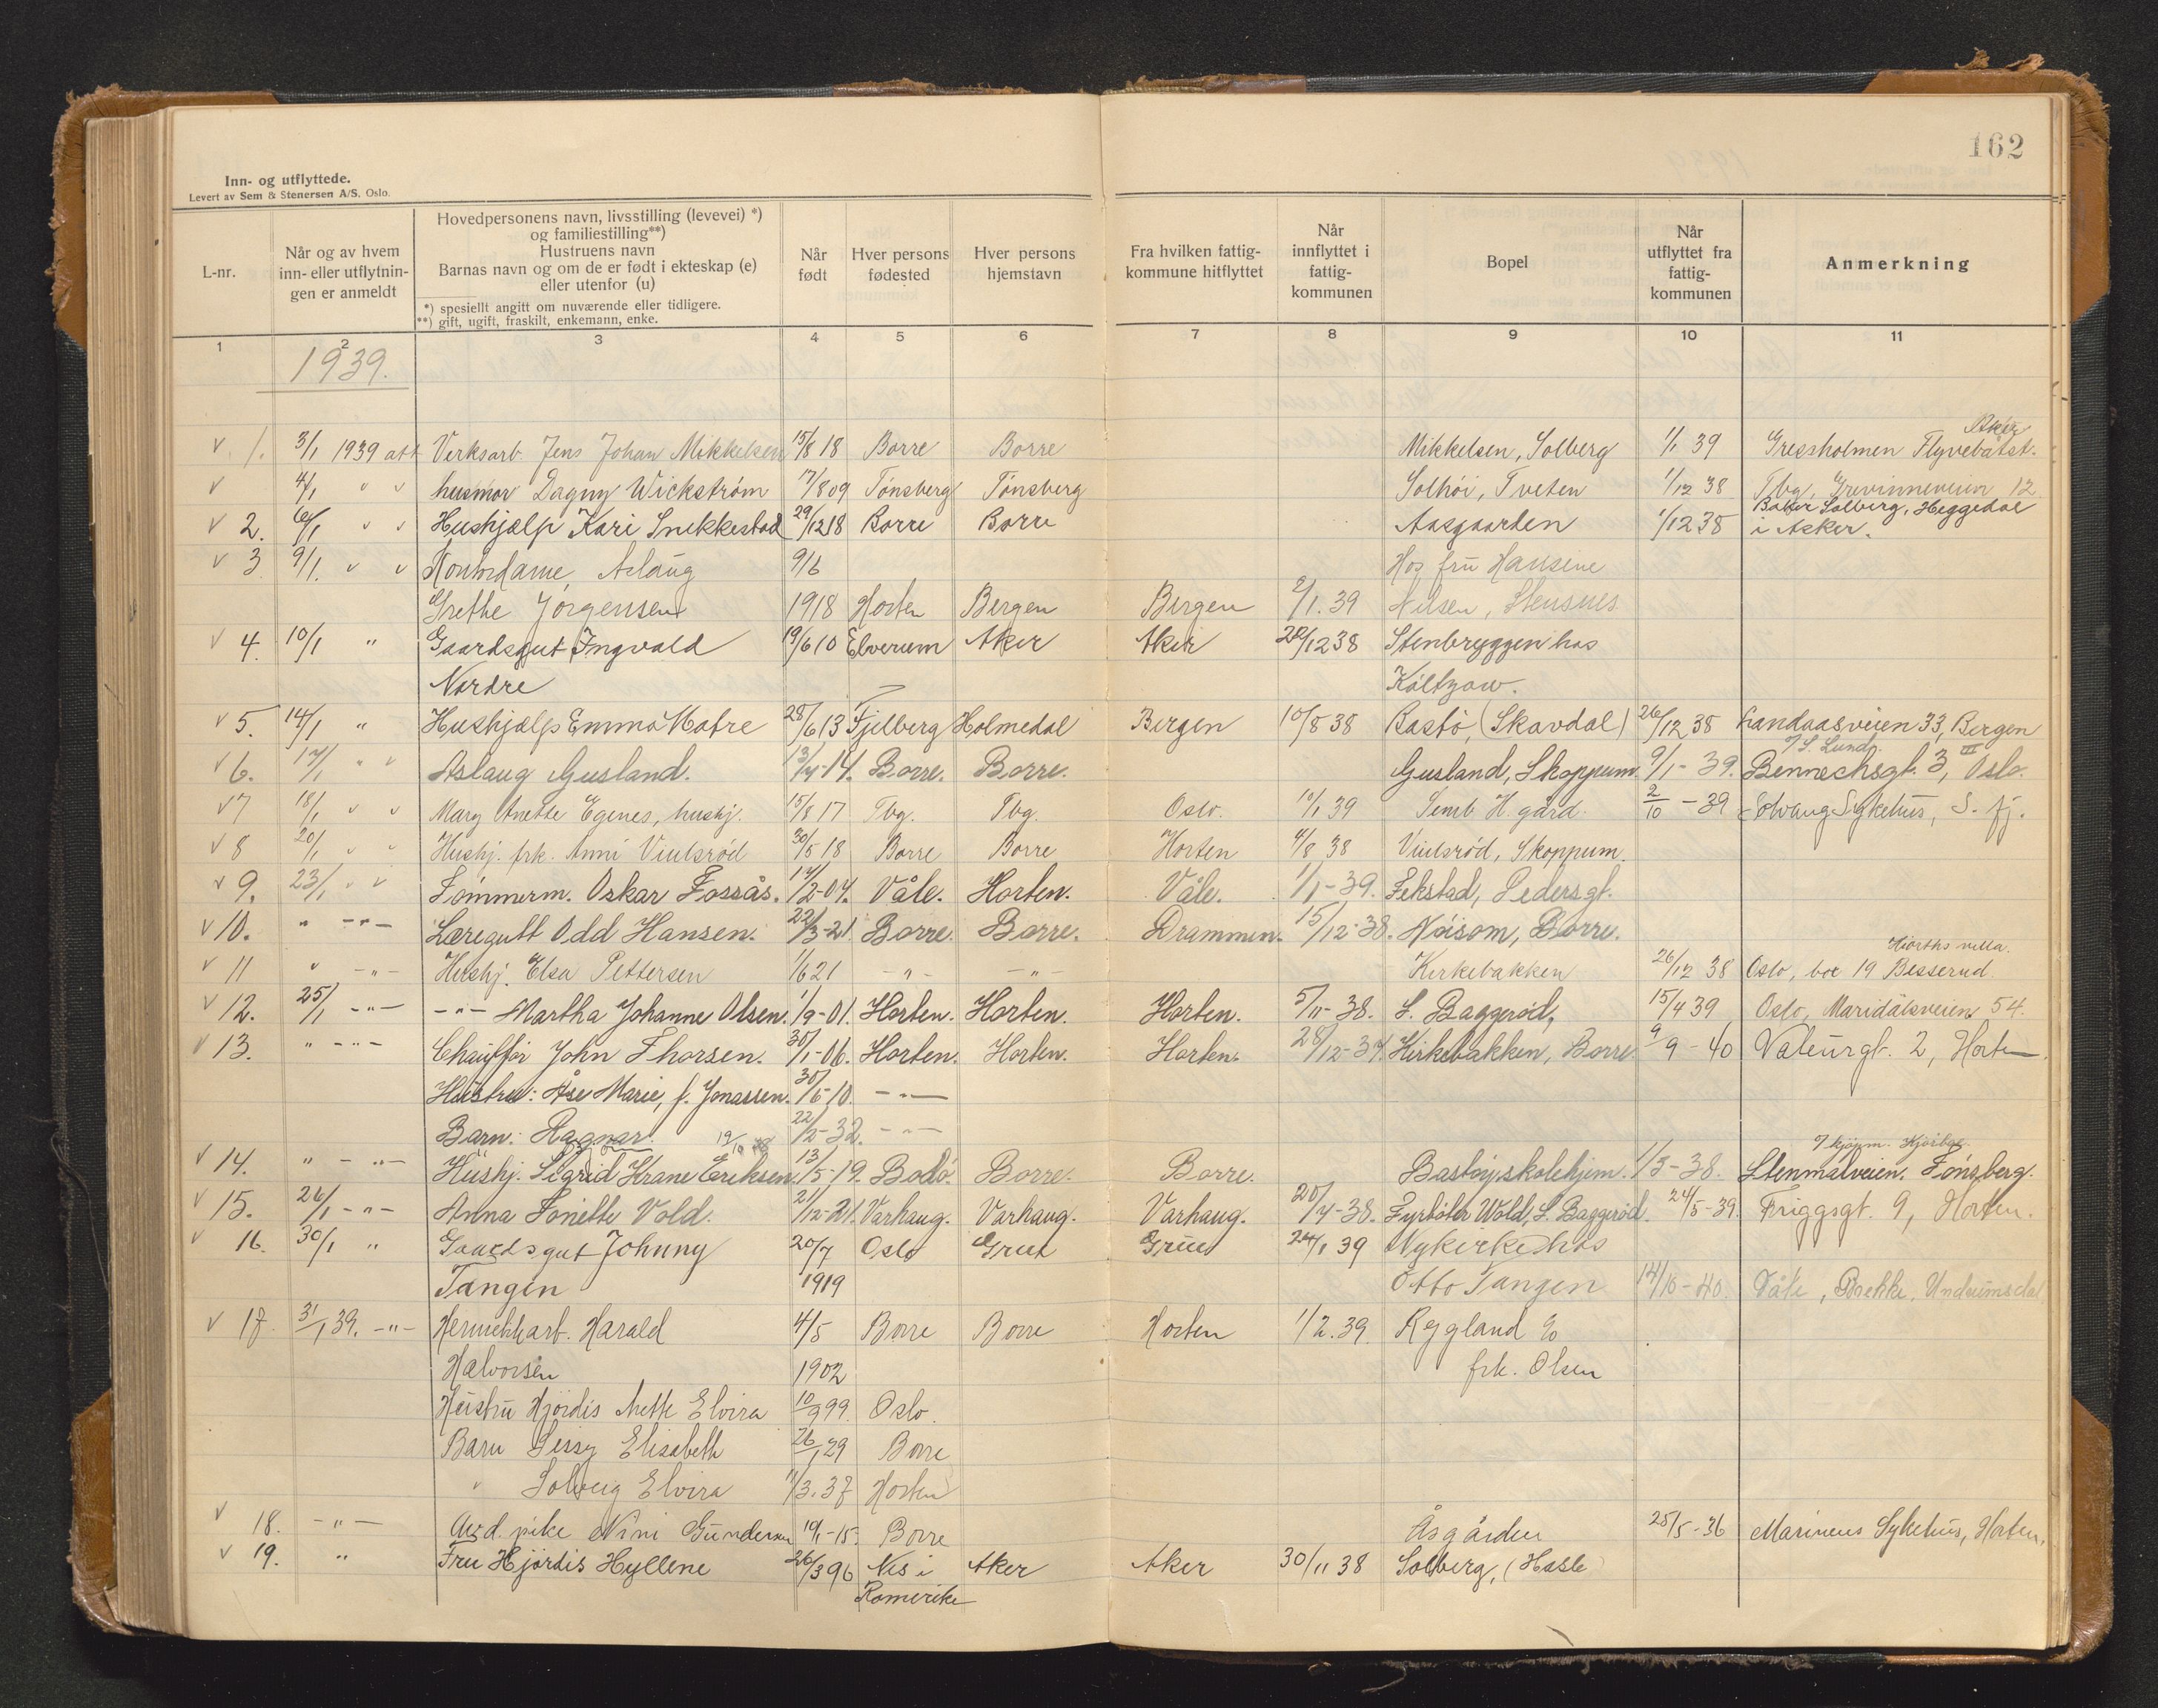 162
Inn- og utflyttede.
Levert av Sem & Stenersen A/S. Oslo.
L-nr.
Når og av hvem inn- eller utflytnin- gen er anmeldt
Hovedpersonens navn, livsstilling (levevei) *) og familiestilling**) Hustruens navn Barnas navn og om de er født i ekteskap (e) eller utenfor (u)
*) spesiellt angitt om nuværende eller tidligere.
**) gift, ugift, fraskilt, enkemann, enke.
Når født
Hver persons fødested
Hver persons hjemstavn
Fra hvilken fattig- kommune hitflyttet
Når innflyttet i fattig- kommunen
Bopel
Når utflyttet fra fattig- kommunen
Anmerkning
1 2 3 4 5 6 7 8 9 10 11
1939.
Aker
v 1. 3/1 1939 att Verksarb. Jens Johan Mikkelsen 15/8 18 Borre Borre Mikkelsen, Solberg 1/1 39 Gressholmen Flyvebåtst.
v 4/1 " " husmor Dagny Wickstrøm 17/8 09 Tønsberg Tønsberg Solhøi, Tveten 1/12 38 Tbg, Grevinneveien 12
Baker Solberg, Heggedal
v 2. 6/1 " " Hushjælp Kari Snekkestad 29/12 18 Borre Borre Aasgaarden 1/12 38 i Asker.
v 3 9/1. " " Aslaug 9/6 Hos fru Hansine
Grethe Jørgensen 1918 Horten Bergen Bergen 2/1. 39 Nilsen, Stensnes
v 4. 10/1 " Gaardsgut Ingvald 19/6 10 Elverum Aker Aker 20/12 38 Stenbryggen hos
Nordre Koltzow.
v 5. 14/1 " Hushjælp Emma Matre 28/6 13 Fjelberg Holmedal Bergen 10/8 38 Bastø, (Skavdal) 26/12 38 Landaasveien 33, Bergen
S. Lund.
v 6. 17/1 " " Aslaug Gusland. 13/4-14. Borre. Borre. Gusland, Skoppum. 9/1- 39. Bennechsgt. 3, III Oslo.
v 7 18/1 " " Mary Anette Egenes, hushj. 15/8 17 Tbg. Tbg. Oslo. 10/1 39 Semb H. gård. 2/10 - 39 Solvang Sykehus, S. fj.
v 8 20/1 " " Hushj. frk. Anni Viulsrød 30/5 18 Borre Borre Horten 4/8 38 Viulsrød, Skoppum.
v 9. 23/1 " " Tømmerm. Oskar Fossås. 17/2-04. Våle. Horten. Våle. 1/1-39. Fekstad, Pedersgt.
v 10. " -"- Læregutt Odd Hansen. 22/3-21. Borre. Borre. Drammen. 15/12-38. Nøisom, Borre.
Hjorths villa.
v 11 " -"- Hushj. Elsa Pettersen 1/6 21 -"- -"- Kirkebakken 26/12 38 Oslo, box 19 Besserud
v 12. 25/1 -"- -"- Martha Johanne Olsen. 1/9-01. Horten. Horten. Horten. 5/11-38. S. Baggerød, 15/4 39 Oslo, Maridalsveien 54.
v 13. " -"- Chauffør John Thorsen. 30/1-06. Horten. Horten. Horten. 28/12-37. Kirkebakken, Borre. 9/9-40 Vateurgt. 2, Horten.
Hustru: Åse Marie, f. Jonassen. 30/6-10. -"-
Barn: Ragnar. 22/2-32. -"-
v 14. " -"- Hushj. Sigrid Krane Eriksen. 13/5-19. Bodø. Borre. Borre. Bastøyskolehjem. 1/3-38. Stenmalveien. Tønsberg.
v 15. 26/1 -"- Anna Tonette Vold. 21/12-21. Varhaug. Varhaug. Varhaug. 20/4-38. Fyrbøter Wold, S. Baggerød. 24/5-39. Friggsgt. 9, Horten.
v 16. 30/1 " Gaardsgut Johnny 20/7 Oslo Grue Grue 24/1 39 Nykirke hos
Tangen 1919 Otto Tangen 14/10-40. Våle, Bække, Undrumsdal
v 17. 31/1 39. -"- Harald 4/5 Borre Borre Horten 1/2. 39. Ryggland c/o
Halvorsen 1902 frk. Olsen
Hustru Hjørdis Anette Elvira 10/9 99. Oslo.
Barn Sessy Elisabeth 26/1 29 Borre
" Solveig Elvira 11/3. 37 Horten
v 18. -"- Arb. pike Nini Gundersen 19/1-15. Borre Åsgården 25/5-36 Marinens Sykehus, Horten.
v 19. " Fru Hjørdis Hyllene 26/3 96 Nes i Aker Aker 30/11 38 Solberg, (Hasle)
Romerike